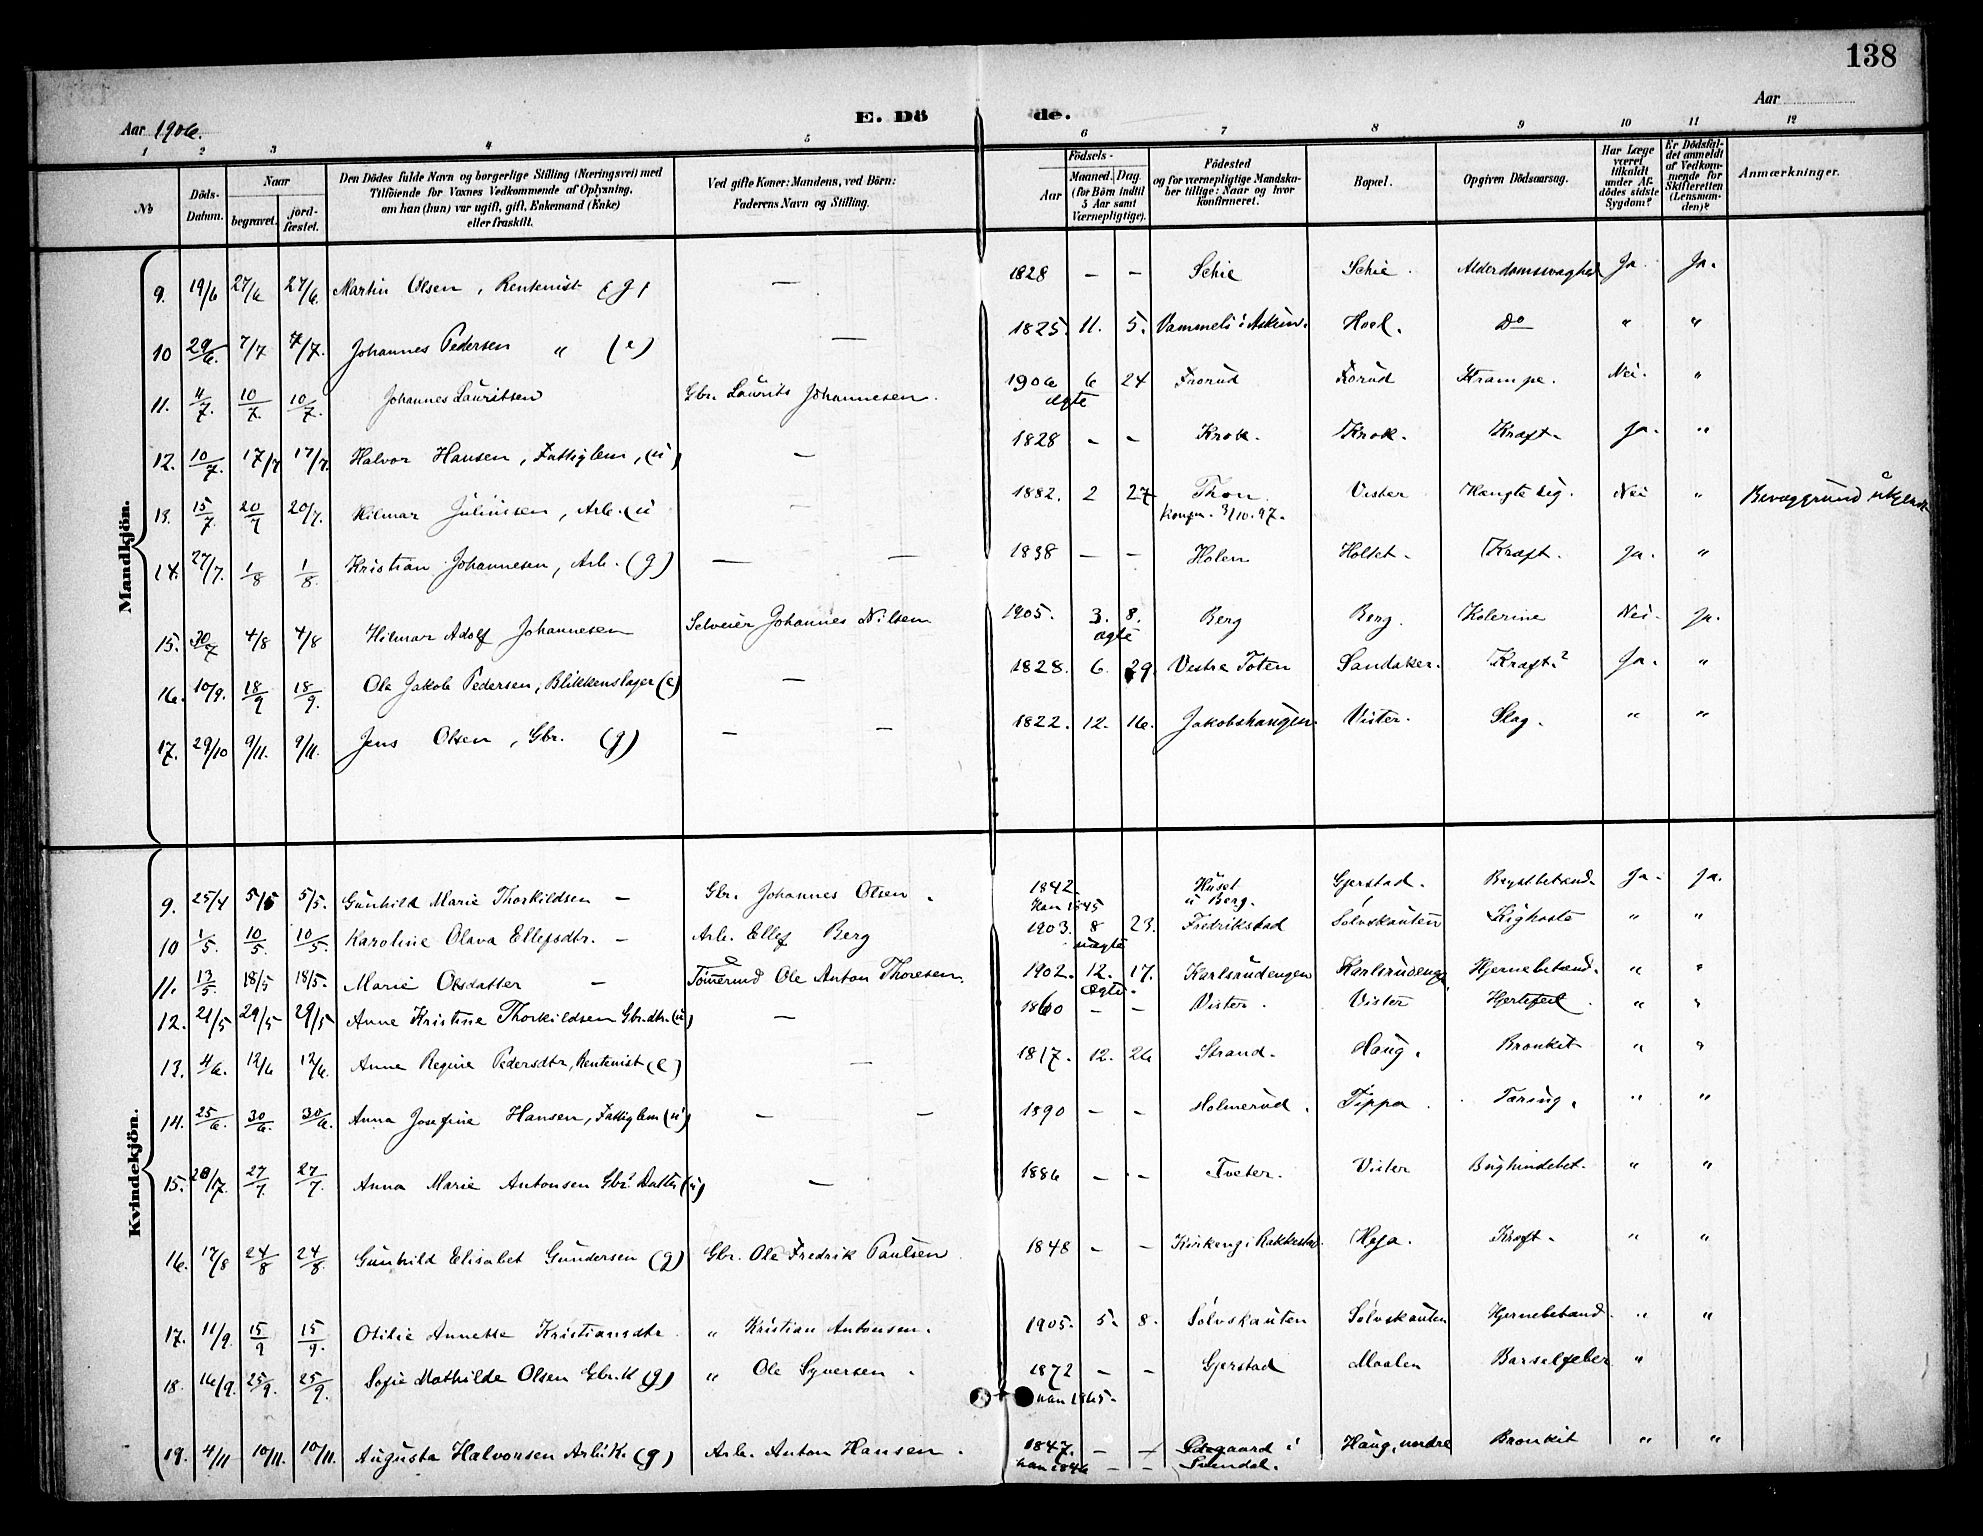 138
Aar 1906. E. Dö de. Aar
1 2 3 4 5 6 7 8 9 10 11 12
№ Döds-Datum. Naar begravet. jord-fæstet. Den Dödes fulde Navn og borgerlige Stilling (Næringsvei) med Tilföiende for Voxnes Vedkommende af Oplysning, om han (hun) var ugift, gift, Enkemand (Enke) eller fraskilt. Ved gifte Koner: Mandens, ved Börn: Faderens Navn og Stilling. Födsels- Aar Maaned. Dag. (for Börn indtil 5 Aar samt Værnepligtige). Födested og for værnepligtige Mandskaber tillige: Naar og hvor konfirmeret. Bopæl. Opgiven Dödsaarsag. Har Læge været tilkaldt under Afdödes sidste Sygdom? Er Dödsfaldet anmeldt af Vedkommende for Skifteretten (Lensmanden)? Anmærkninger.
Mandkjön.
9. 19/6 27/6 27/6. Martin Olsen, Rentenist (g) — 1828 — — Schie Schie. Alderdomssvaghed Ja. Ja.
10 29/6. 7/7 7/7. Johannes Pedersen „ (e) — 1825. 11. 5. Vammeli i Askim. Hoel. Do „ „
11. 4/7. 10/7. 10/7. Johannes Lauritsen Gbr. Laurits Johannesen. 1906 6 24 Frorud Forud Krampe. Nei. „
ægte
12. 10/7. 17/7 17/7. Halvor Hansen, Fattiglem, (u) — 1828 — — Krok. Krok. Kræft. Ja. „
13. 15/7. 20/7 20/7. Hilmar Juliussen, Arb. (u — 1882. 2 27 Thon. Vister Hængte sig. Nei „ Bevæggrund ukjendt
Konfm. 3/10.97.
14. 27/7. 1/8 1/8. Kristian Johannesen, Arb. (g) — — 1838 — — Holen Holtet. Kræft. Ja. „
15. 30/7 4/8 4/8 Hilmar Adolf Johannesen Selveier Johannes Nilsen 1905. 3. 8. Berg Berg. Kolerine Nei. Ja.
ægte
16. 10/9. 18/9 18/9. Ole Jakob Pedersen, Blikkenslager (e) — 1828. 6. 29. Vestre Toten Sandaker. Kræft? Ja. „
17. 29/10 9/11. 9/11. Jens Olsen, Gbr. (g) — — 1822. 12. 16. Jakobshaugen. Vister. Slag. „ „
Kvindekjön.
9. 25/4 5/5 5/5. Gunhild Marie Thorkildsen — Gbr. Johannes Olsen. 1842. Huset u Berg. Gjerstad. Brystbetænd. Ja. Ja.
han 1845
10 1/5. 10/5 10/5. Karoline Olava Ellefsdtr. — Arb. Ellef Berg 1903. 8 23. Fredrikstad Sølvskauten Kighoste „ „
uægte
11. 13/5. 18/5 18/5. Marie Olsdatter — Tømmermd Ole Anton Thoresen. 1902. 12. 17. Karlsrudengen Karlsrudengen Hjernebetænd. „ „
ægte.
12. 21/5 29/5 29/5 Anne Kristine Thorkildsen Gbr.dtr. (u) — 1860 — — Vister. Vister Hjertefeil. „ „
13. 4/6. 12/6 12/6. Anne Regine Pedersdtr, Rentenist (e) — 1817. 12. 26 Strand. Haug. Bronkit „ „
14. 25/6. 30/6. 30/6. Anna Josefine Hansen, Fattiglem (u) — — 1890 — — Holmerud. Tippa. Tæring. „ „
15. 20/7. 27/7. 27/7. Anna Marie Antonsen Gbr. Datter (u) — 1886 — — Tveter. Vister Bughindebet. „ „
16. 17/8 24/8 24/8. Gunhild Elisabet Gundersen (g) Gbr. Ole Fredrik Paulsen 1848 — — Kirkeng i Rakkestad. Heja. Kræft. „ „
17. 11/9. 15/9 15/9. Otilie Annette Kristiansdtr. „ Kristian Antonsen. 1905. 5. 8. Sølvskauten Sølvskauten Hjernebetænd. „ „
18. 16/9. 25/9. 25/9. Sofie Mathilde Olsen Gbr.K (g) „ Ole Syversen. 1872 — — Gjerstad Maalen Barselfeber „
han 1865.
19. 4/11 10/11. 10/11. Augusta Halvorsen Arb.K. (g) Arb. Anton Hansen. 1847. — — Ødegaard i Haug, nordre Bronkit „ „
han 1846 — — Svendal.